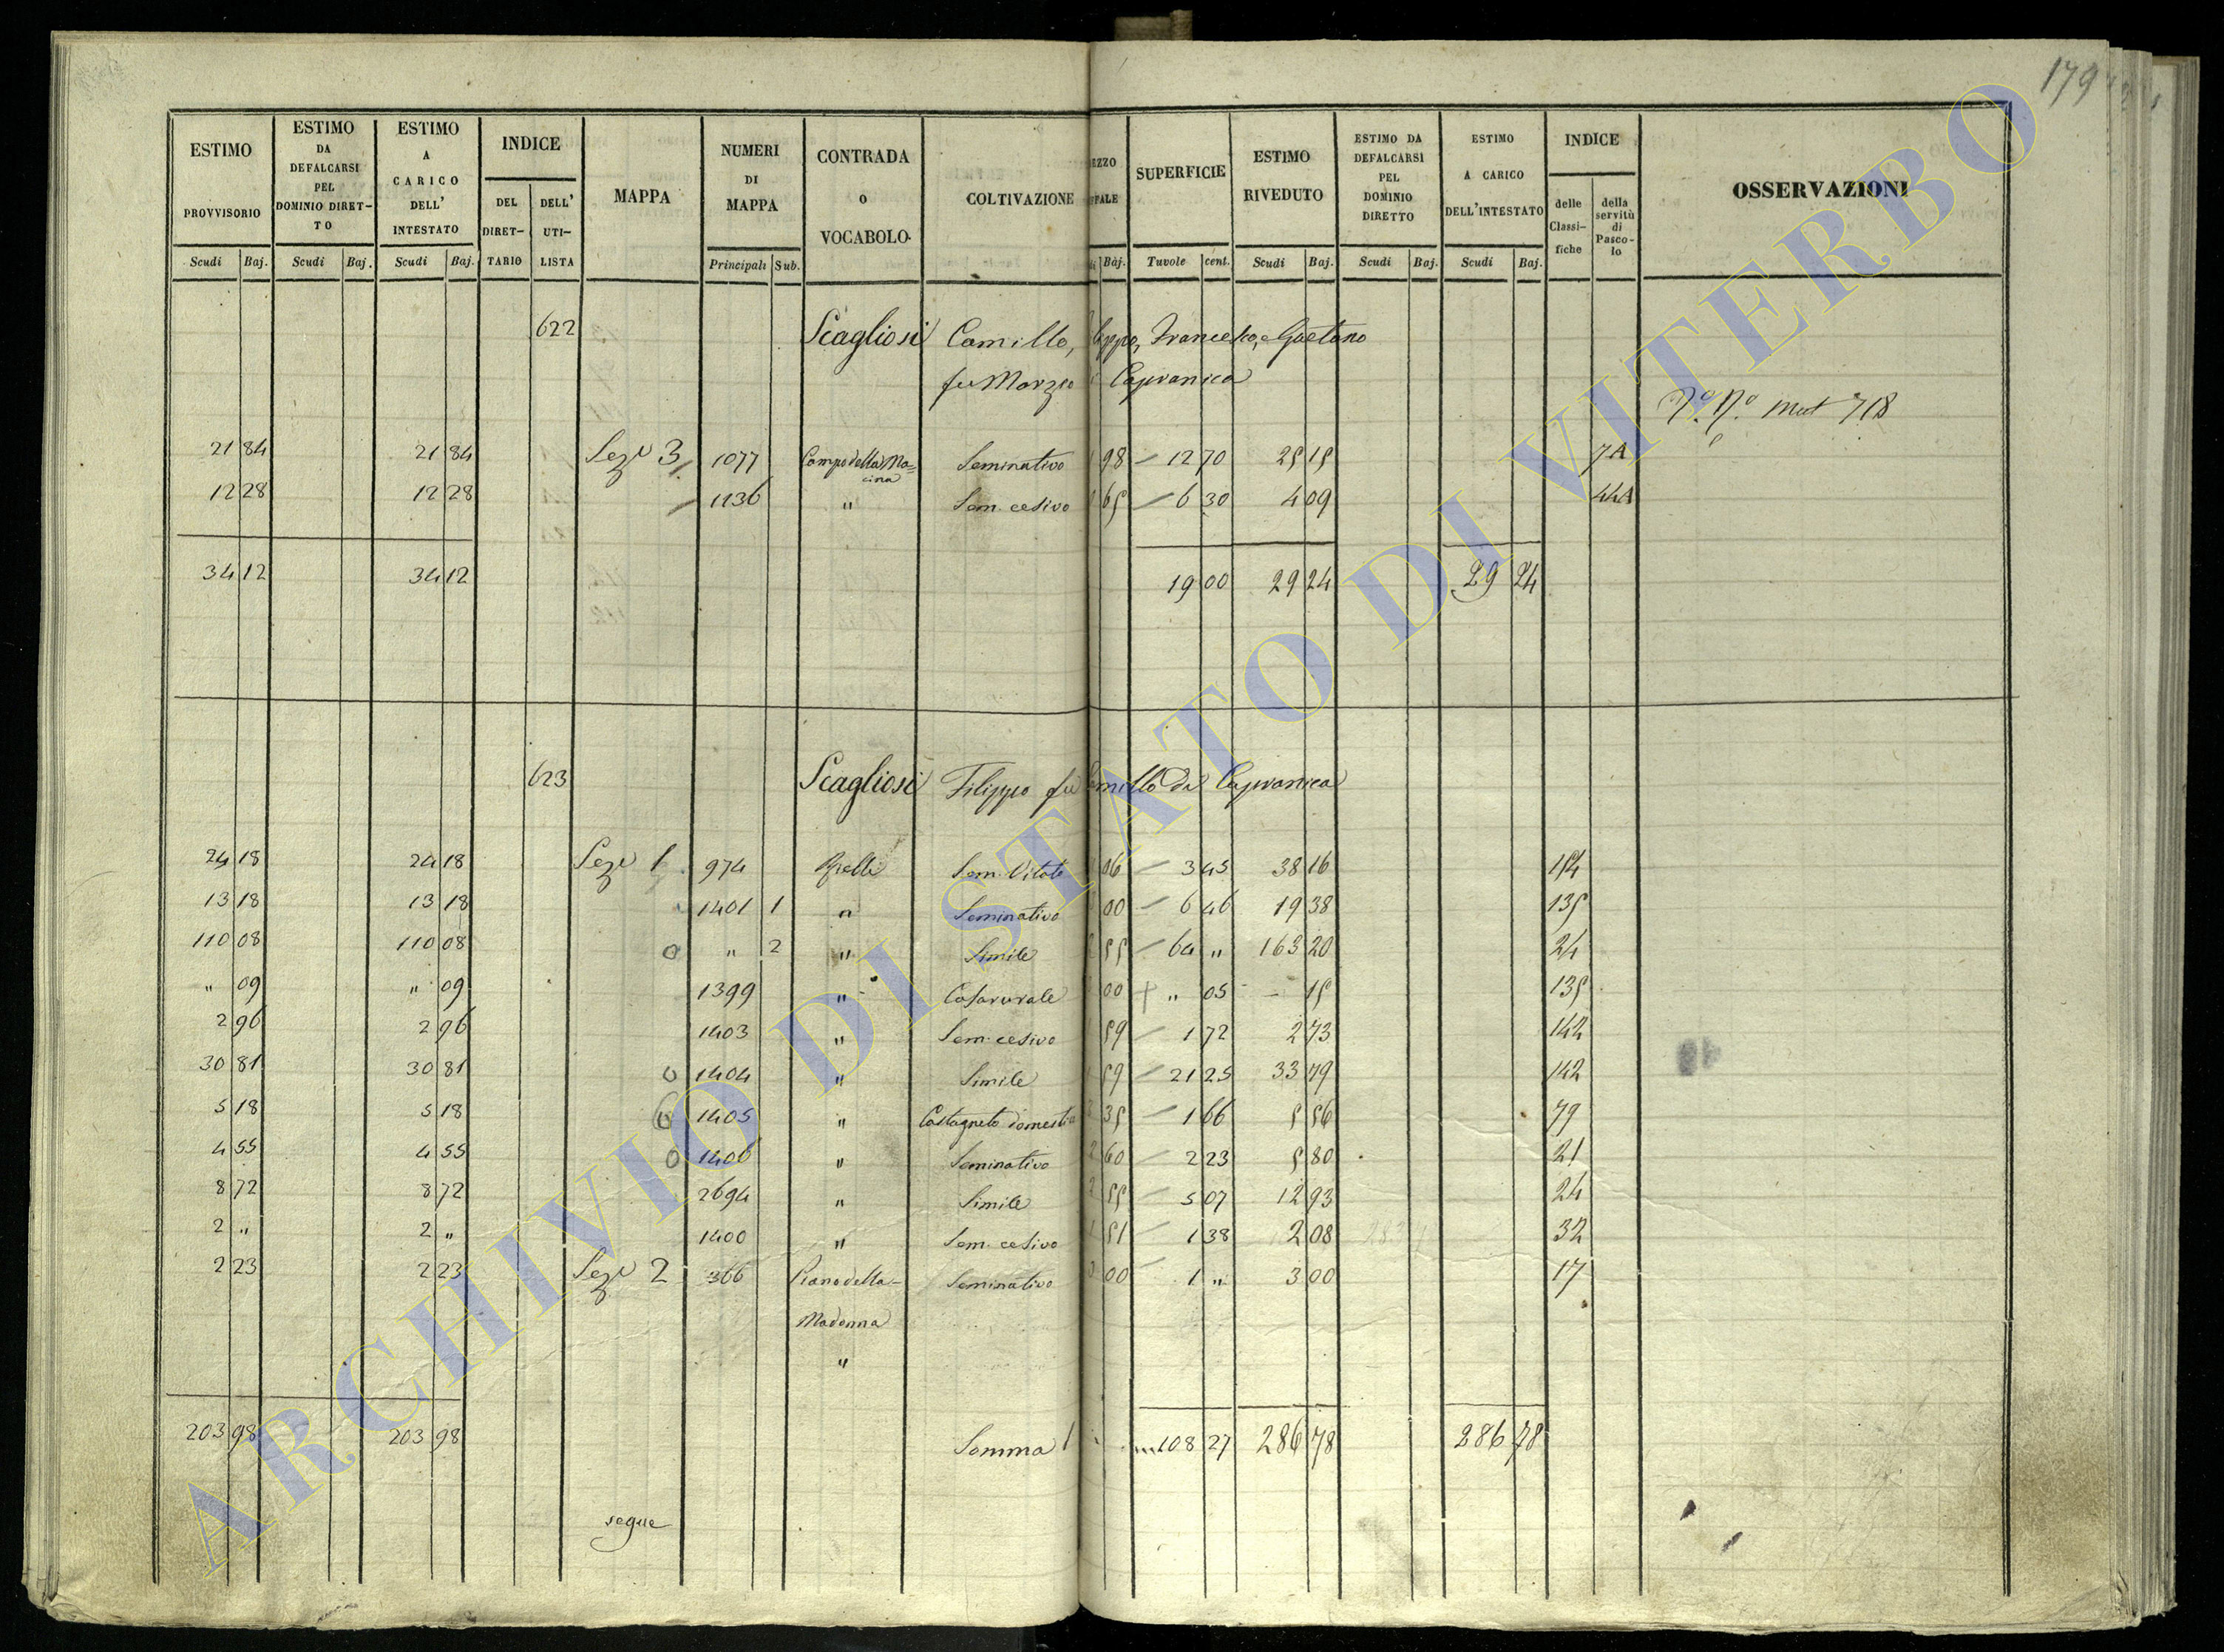 179
ESTIMO PROVVISORIO Scudi Baj. ESTIMO DA DEFALCARSI PEL DOMINIO DIRETTO Scudi Baj. ESTIMO A CARICO DELL' INTESTATO Scudi Baj. INDICE DEL DIRETTARIO DELL' UTILISTA MAPPA NUMERI DI MAPPA Principali Sub. CONTRADA O VOCABOLO COLTIVAZIONE EZZO Baj. SUPERFICIE Tavole cent. ESTIMO RIVEDUTO Scudi Baj. ESTIMO DA DEFALCARSI PEL DOMINIO DIRETTO Scudi Baj. ESTIMO A CARICO DELL'INTESTATO Scudi Baj. INDICE delle Classifiche della servitù di Pascolo OSSERVAZIONI
622 Scagliosi Camillo, Francesco, e Gaetano
fu Marzio Capranica
718
21 84 21 84 Sez.e 3 1077 Campo della Macina Seminativo 98 12 70 25 15 7A
12 28 12 28 1136 " Sem. cesivo 65 6 30 4 09 44A
34 12 34 12 19 00 29 24 29 24
623 Scagliosi Filippo fu Camillo da Capranica
24 18 24 18 Sez.e 1 974 Sem. Vitato 06 3 45 38 16 154
13 18 13 18 1401 1 " Seminativo 00 6 46 19 38 135
110 08 110 08 0 " 2 " Simile 55 64 " 163 20 24
" 09 " 09 1399 " Casa rurale 00 + " 05 - 15 135
2 96 2 96 1403 " Sem. cesivo 59 1 72 2 73 142
30 81 30 81 0 1404 " Simile 59 21 25 33 79 142
5 18 5 18 0 1405 " Castagneto domestico 35 1 66 5 56 79
4 55 4 55 0 1406 " Seminativo 2 60 2 23 5 80 21
8 72 8 72 2694 " Simile 2 55 5 07 12 93 24
2 " 2 " 1400 " Sem. cesivo 1 51 1 38 2 08 32
2 23 2 23 Sez.e 2 366 Piano della Seminativo 00 1 " 3 00 17
Madonna
"
203 98 203 98 Somma 108 27 286 78 286 78
segue
ARCHIVIO DI STATO DI VITERBO